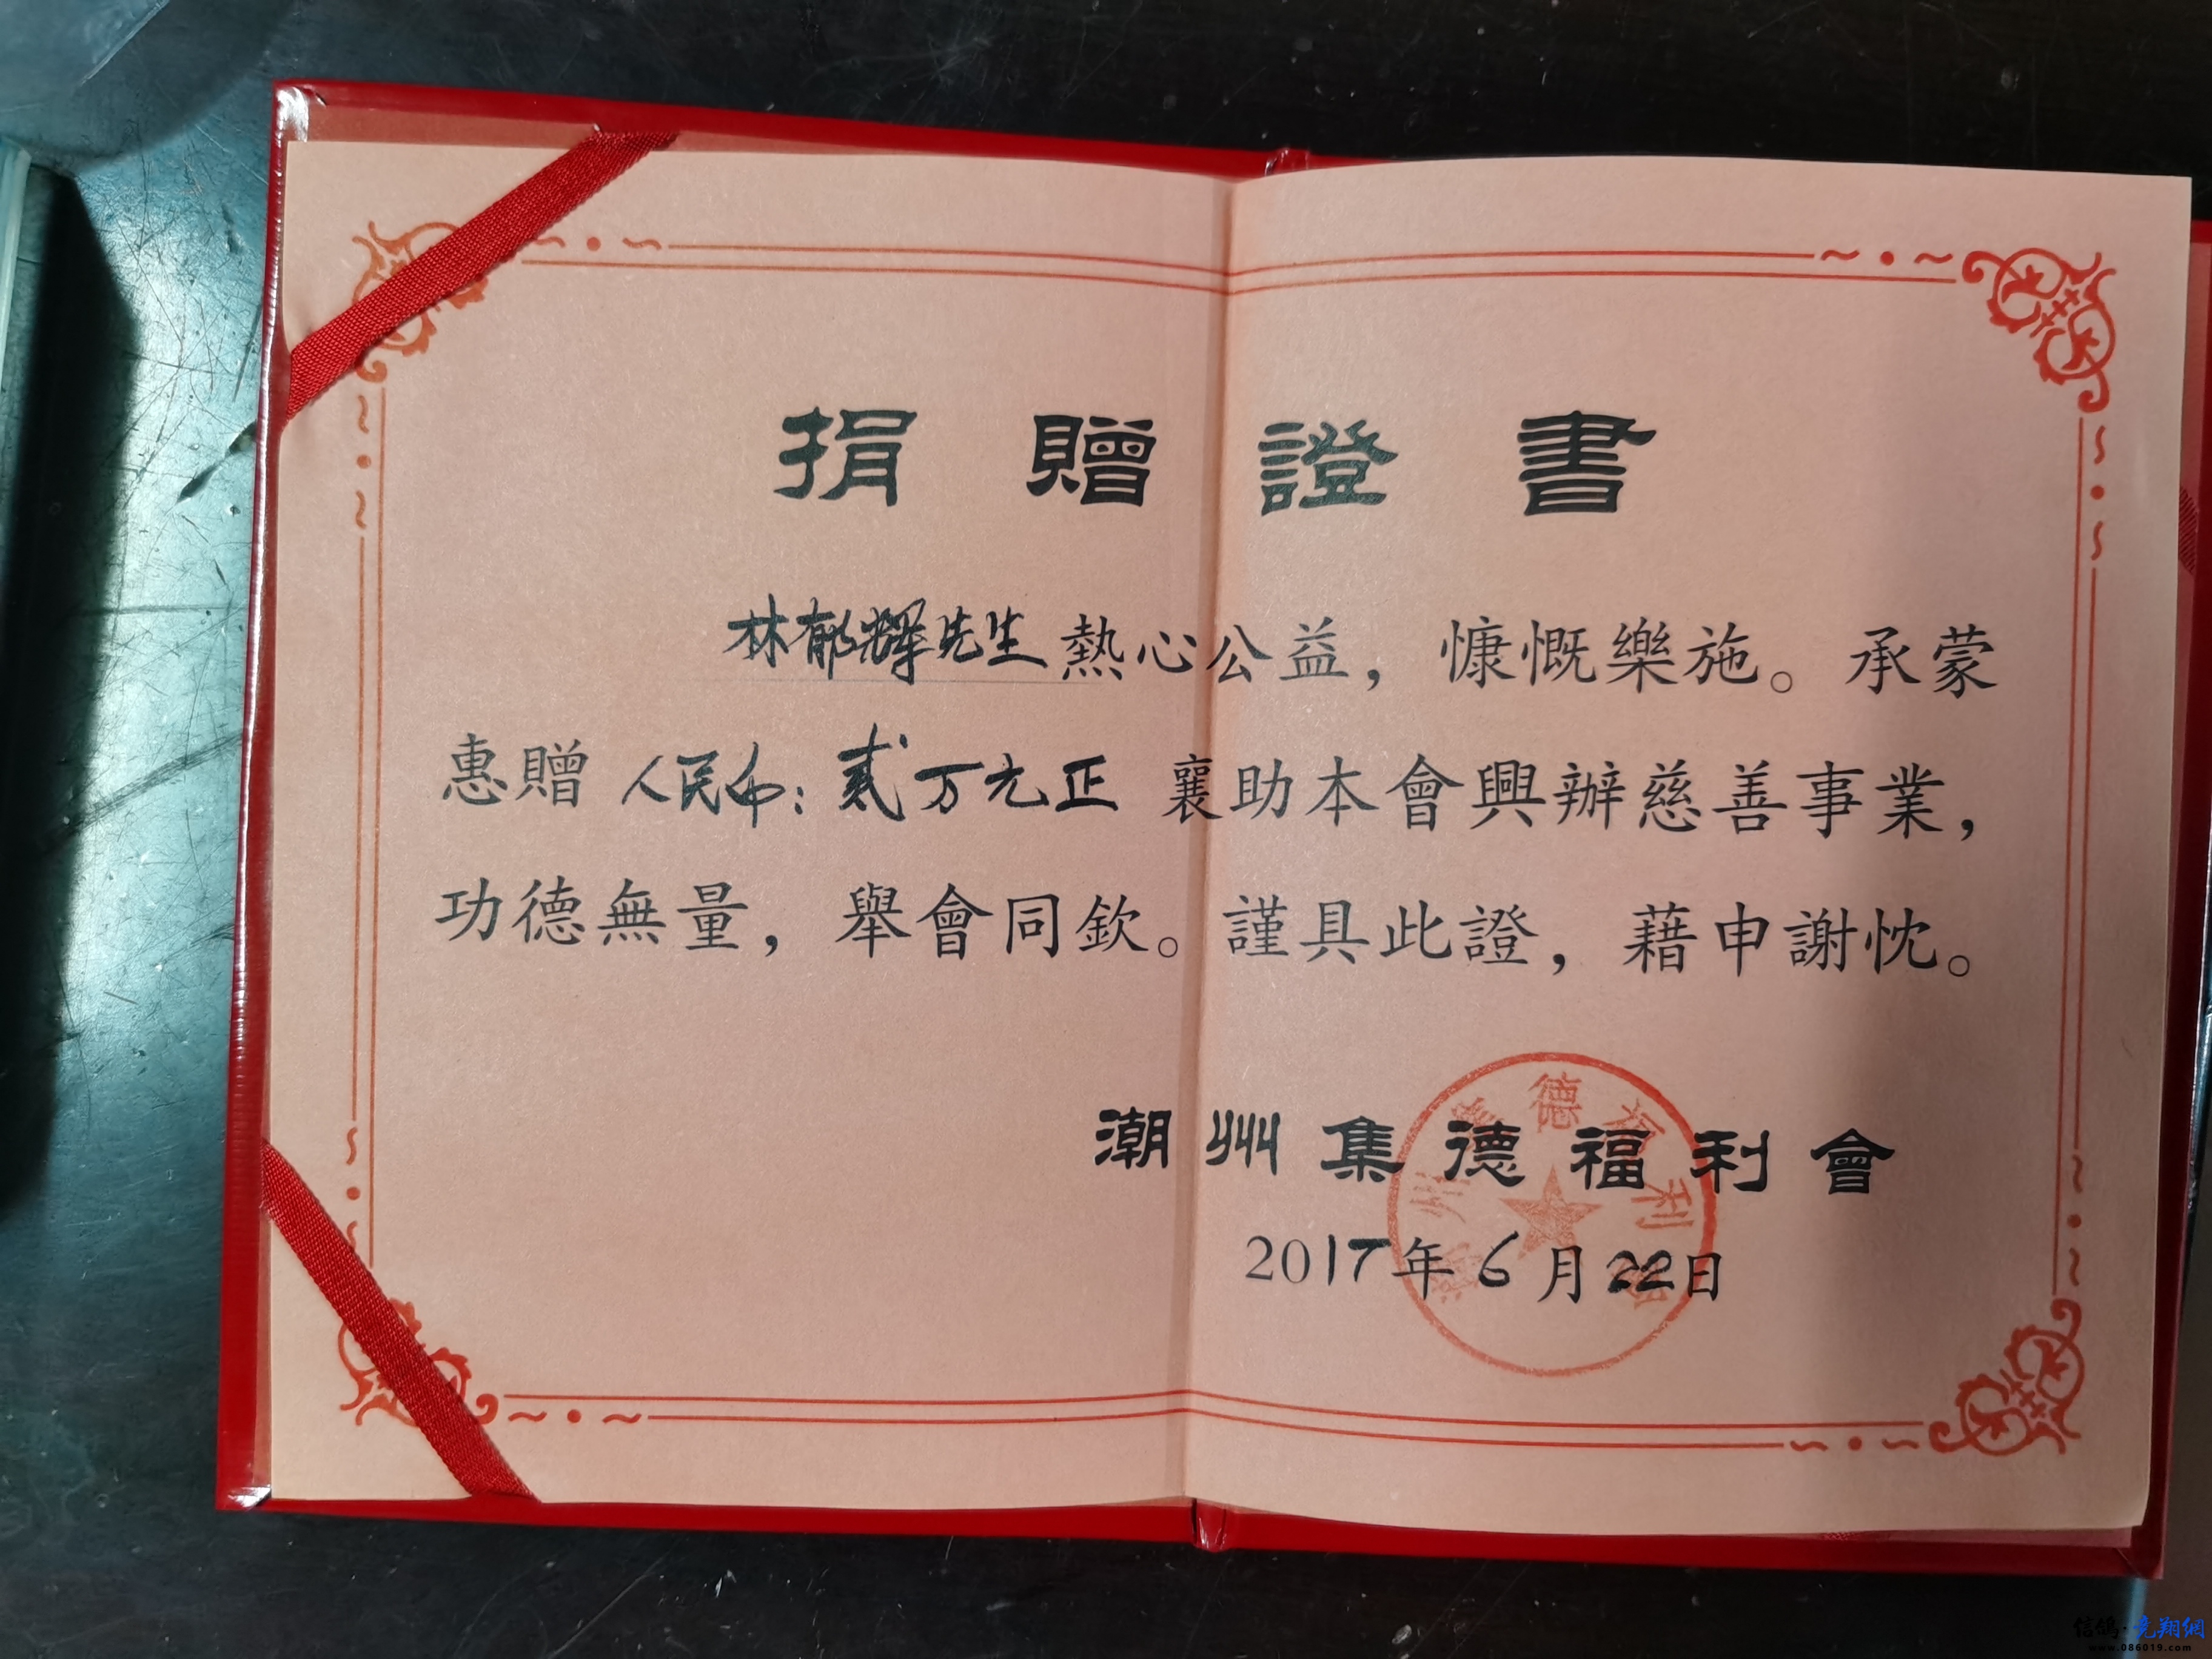 捐贈證書
林郁輝先生熱心公益，慷慨樂施。承蒙
惠贈 人民币：贰万元正 襄助本會興辦慈善事業，
功德無量，舉會同欽。謹具此證，藉申謝忱。
潮州集德福利會
2017年6月22日
德福利
信鴿·竞翔網
www.086019.com